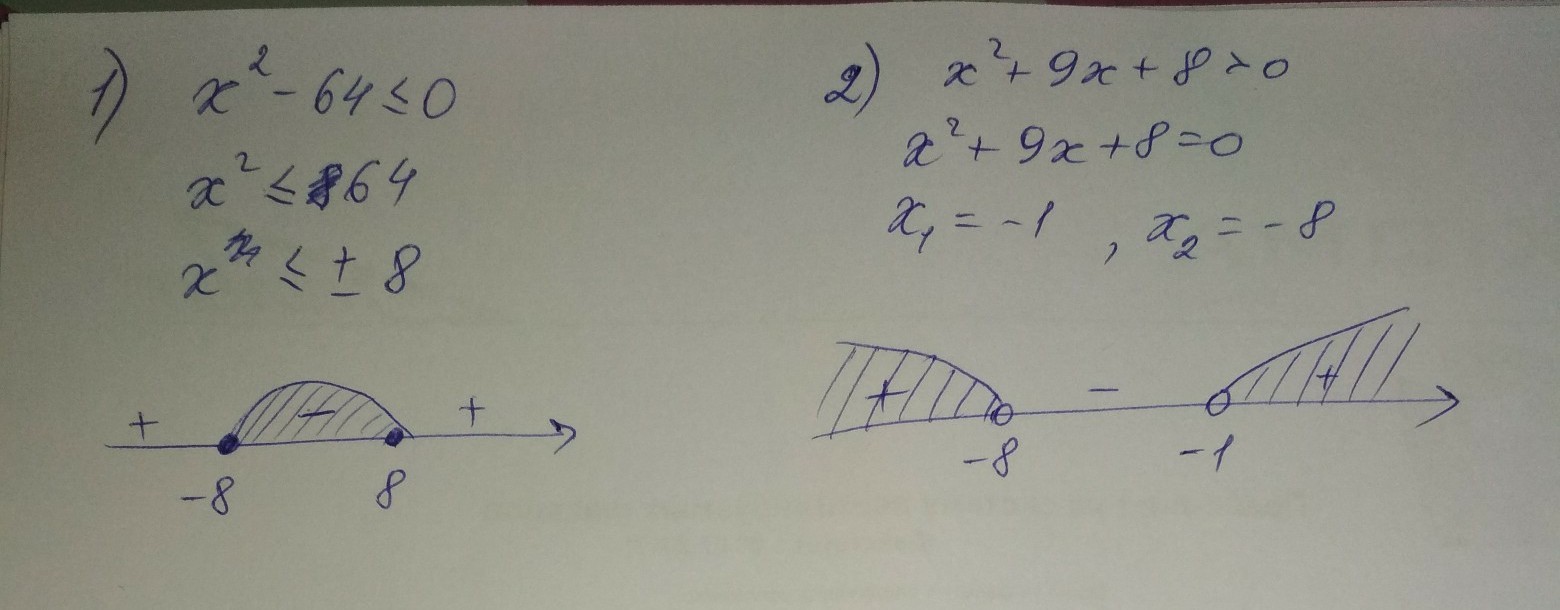 1) x² - 64 ≤ 0
x² ≤ 64
x ≤ ± 8
+ - +
-8 8
2) x² + 9x + 8 > 0
x² + 9x + 8 = 0
x₁ = -1 , x₂ = -8
+ - +
-8 -1